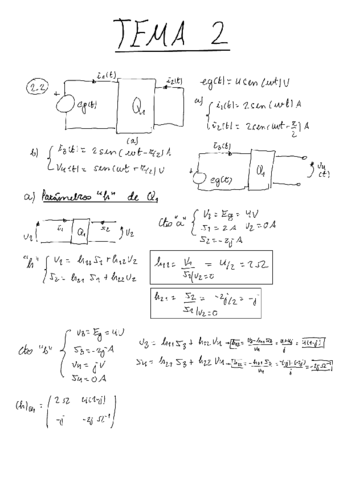 TEMA 2
2.2
i₁(t)
i₂(t)
eg(t)
Q₁
(a)
eg(t) = 4 sen(wt) V
a) { i₁(t) = 2 sen(wt) A
i₂(t) = 2 sen(wt - π/2) A
b) { i₃(t) = 2 sen(wt - π/2) A
V₄(t) = sen(wt + π/2) V
i₃(t)
eg(t)
Q₁
V₄(t)
a) Parámetros "h" de Q₁
I₁
Q₁
I₂
V₁
V₂
Cto "a" { V₁ = Eg = 4V
I₁ = 2 A V₂ = 0
I₂ = -2j A
"h" { V₁ = h₁₁ I₁ + h₁₂ V₂
I₂ = h₂₁ I₁ + h₂₂ V₂
h₁₁ = V₁/I₁|V₂=0 = 4/2 = 2Ω
h₂₁ = I₂/I₁|V₂=0 = -2j/2 = -j
Cto "b" { V₃ = Eg = 4V
I₃ = -2j A
V₄ = jV
I₄ = 0 A
V₃ = h₁₁ I₃ + h₁₂ V₄
I₄ = h₂₁ I₃ + h₂₂ V₄
(h)Q₁ = ( 2Ω 4(1-j)
-j -2j Ω⁻¹ )